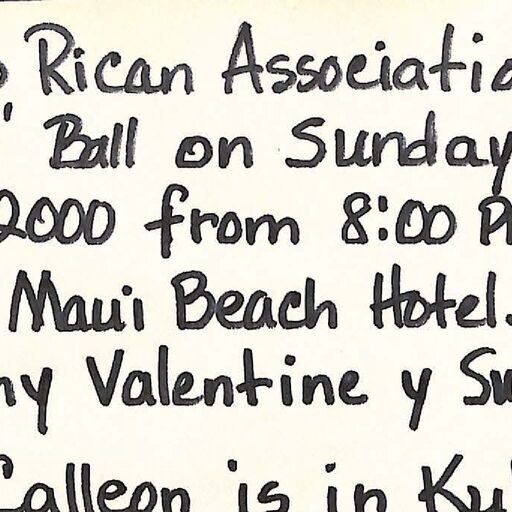 o Rican Association
' Ball on Sunday
2000 from 8:00 P
Maui Beach Hotel.
ny Valentine y Su
Calleon is in Ku